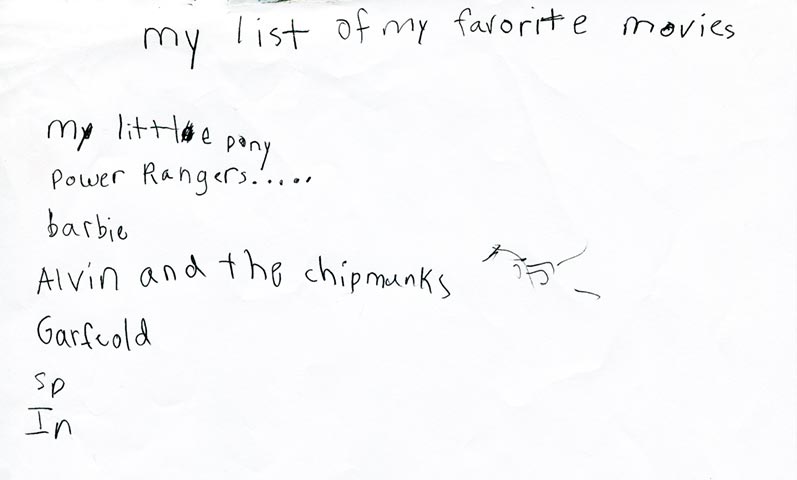 my list of my favorite movies
my little pony
power Rangers.....
barbie
Alvin and the chipmunks
Garfeold
sp
In